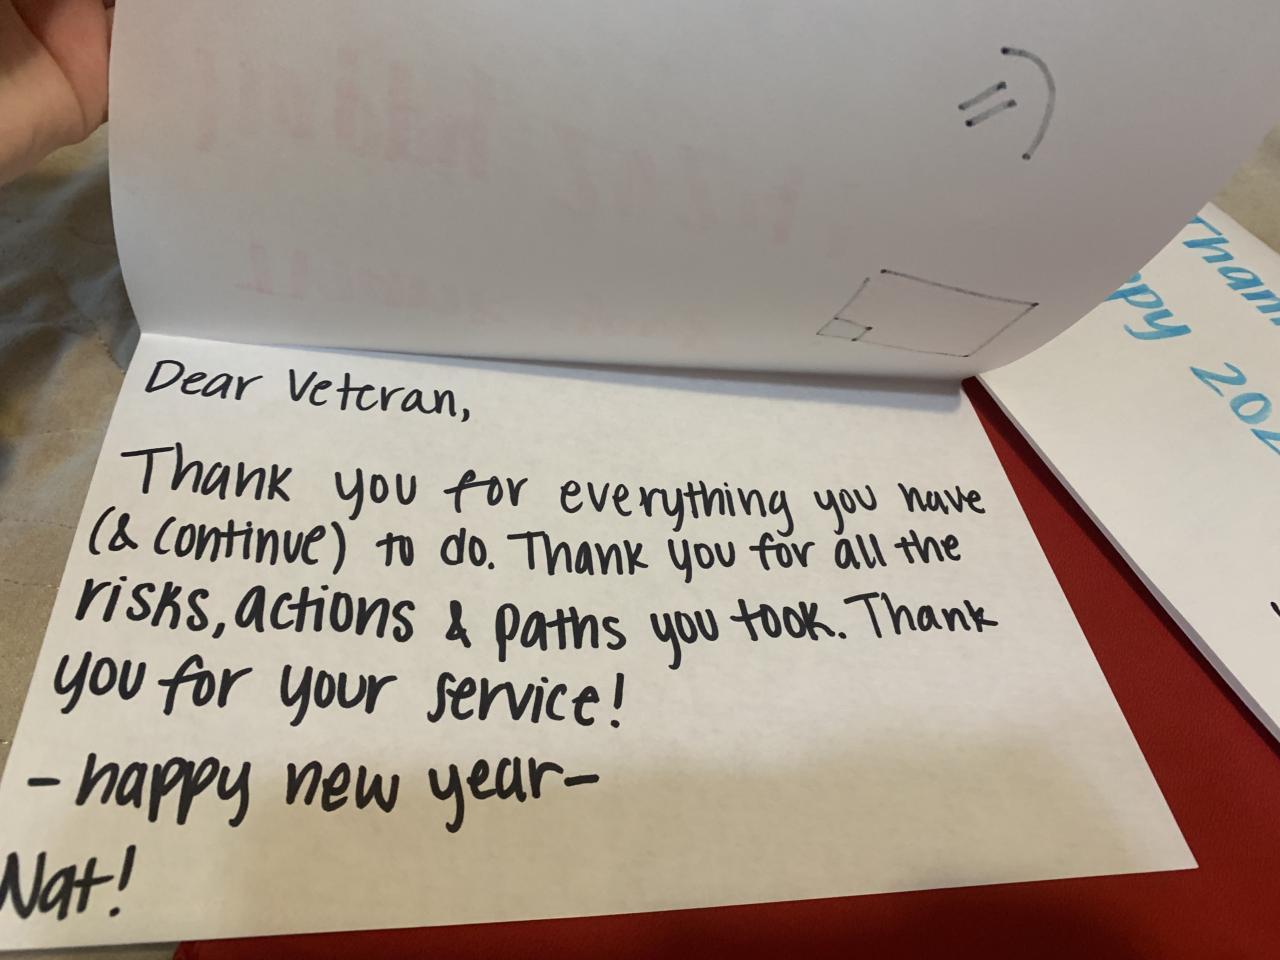 =)
Dear Veteran,
Thank you for everything you have
(& continue) to do. Thank you for all the
risks, actions & paths you took. Thank
you for your service!
- happy new year-
Nat!